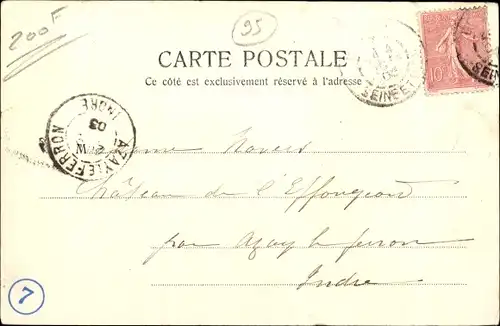 200F
95
CARTE POSTALE
Ce côté est exclusivement réservé à l'adresse
SEINE ET
10
SEINE
AZAY LE FERRON
INDRE
03
Château de l'Effougeard
par Azay le ferron
Indre
7